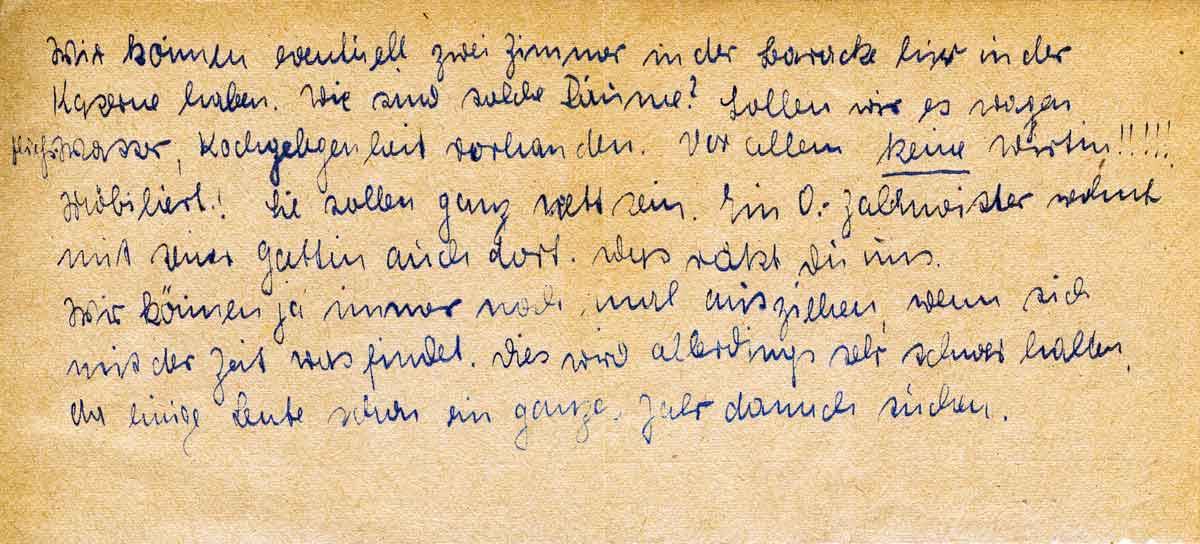 Wir können eventuell zwei Zimmer in der Baracke hier in der
Kaserne haben. Wie sind solche Räume? Sollen wir es wagen
fließ. Wasser, Kochgelegenheit vorhanden. Vor allem keine Wirtin!!!!!
Möbiliert! Sie sollen ganz nett sein. Ein O.-Zahlmeister wohnt
mit seiner Gattin auch dort. Was rätst Du uns.
Wir können ja immer noch mal ausziehen, wenn sich
mit der Zeit was findet. Dies wird allerdings sehr schwer halten,
da einige Leute schon ein ganzes Jahr danach suchen.